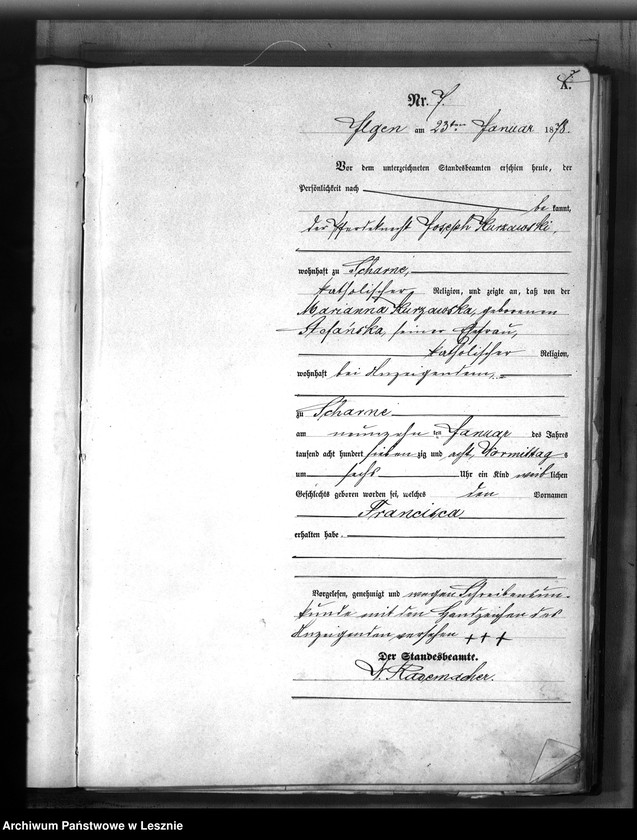 A.
Nr. 7.
Ilgen am 23ten Januar 1878.
Vor dem unterzeichneten Standesbeamten erschien heute, der
Persönlichkeit nach
be kannt,
der Pferdeknecht Joseph Kurzawski,
wohnhaft zu Scharne,
katholischer Religion, und zeigte an, daß von der
Marianna Kurzawska, geborenen
Stofańska, seiner Ehefrau,
katholischer Religion,
wohnhaft bei Anzeigendem,
zu Scharne
am neunzehn ten Januar des Jahres
tausend acht hundert sieben zig und acht, Vormittag s
um sechs Uhr ein Kind weib lichen
Geschlechts geboren worden sei, welches den Vornamen
Francisca
erhalten habe.
Vorgelesen, genehmigt und wegen Schreibensun-
kunde mit den Handzeichen des
Anzeigenden versehen +++
Der Standesbeamte.
Rademacher.
Archiwum Państwowe w Lesznie